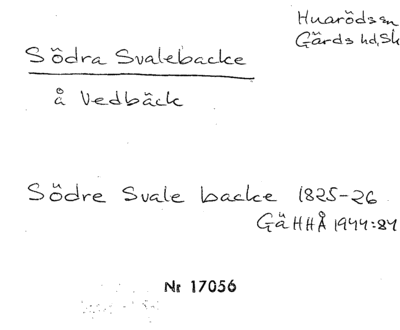 Huarödssn
Gärds hd, Sk
Södra Svalebacke
å Vedbäck
Södre Svale backe 1825-26
Gä HHÅ 1944:84
Nr 17056